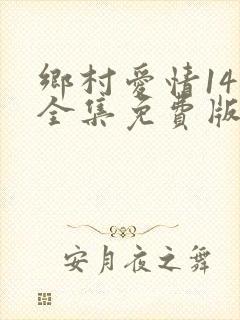 鄉村愛情14
全集免費版
安月夜之舞